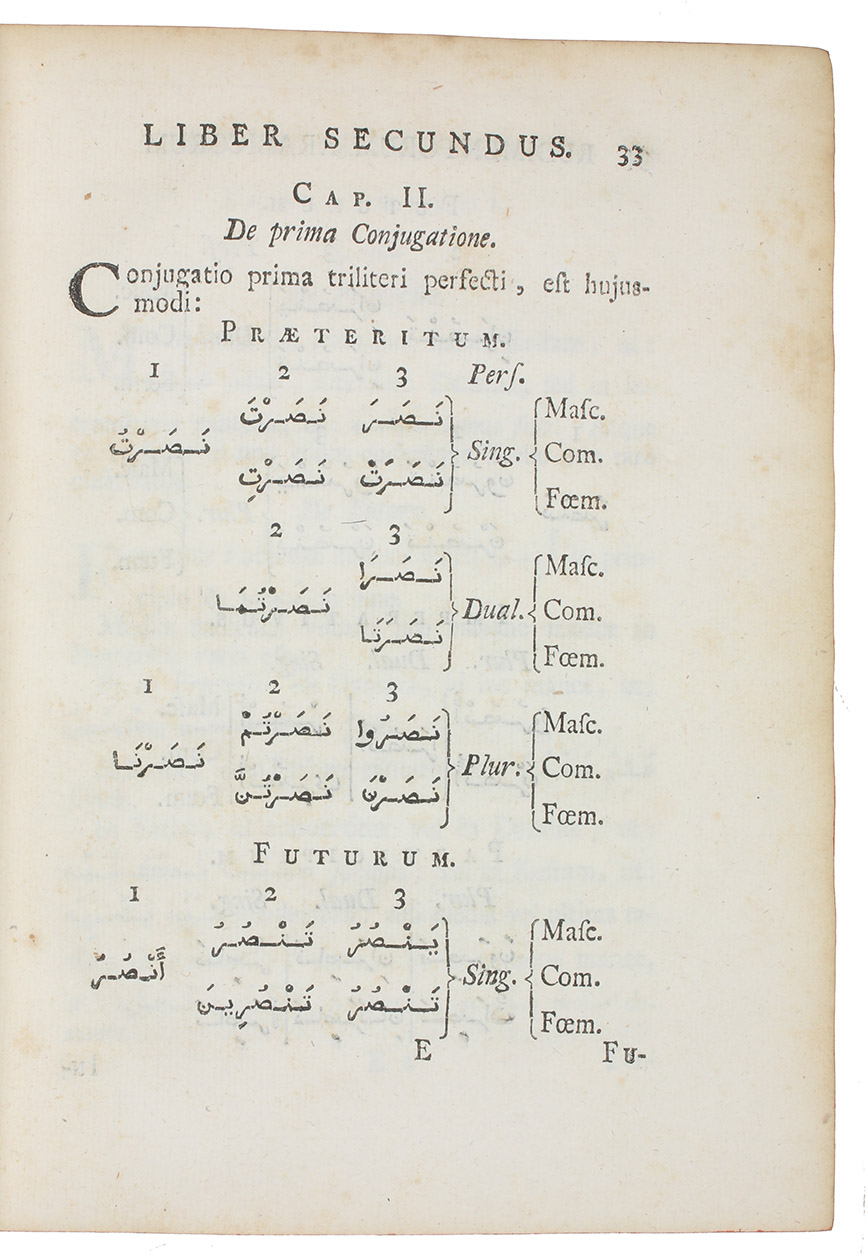 LIBER SECUNDUS. 33
CAP. II.
De prima Conjugatione.
Conjugatio prima triliteri perfecti, eſt hujus-
modi:
PRÆTERITUM.
1 2 3 Perſ.
نَصَرْتَ نَصَرَ Maſc.
نَصَرْتُ Sing. Com.
نَصَرْتِ نَصَرَتْ Fœm.
2 3
نَصَرَا Maſc.
نَصَرْتُمَا Dual. Com.
نَصَرَتَا Fœm.
1 2 3
نَصَرْتُمْ نَصَرُوا Maſc.
نَصَرْنَا Plur. Com.
نَصَرْتُنَّ نَصَرْنَ Fœm.
FUTURUM.
1 2 3
تَنْصُرُ يَنْصُرُ Maſc.
أَنْصُرُ Sing. Com.
تَنْصُرِينَ تَنْصُرُ Fœm.
E Fu-